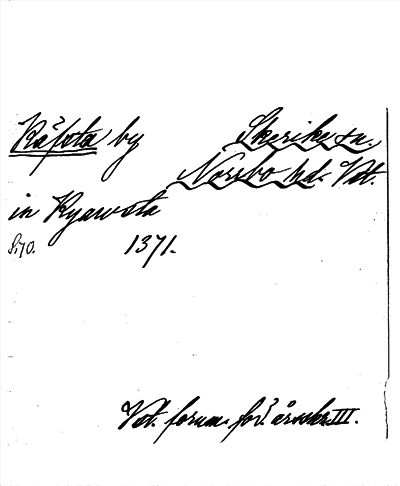 Räfsta by Skerike sn.
Norrbo hd. Vst.
in Ryawsta
S.70. 1371.
Vst. fornm. för:s årsskr. III.